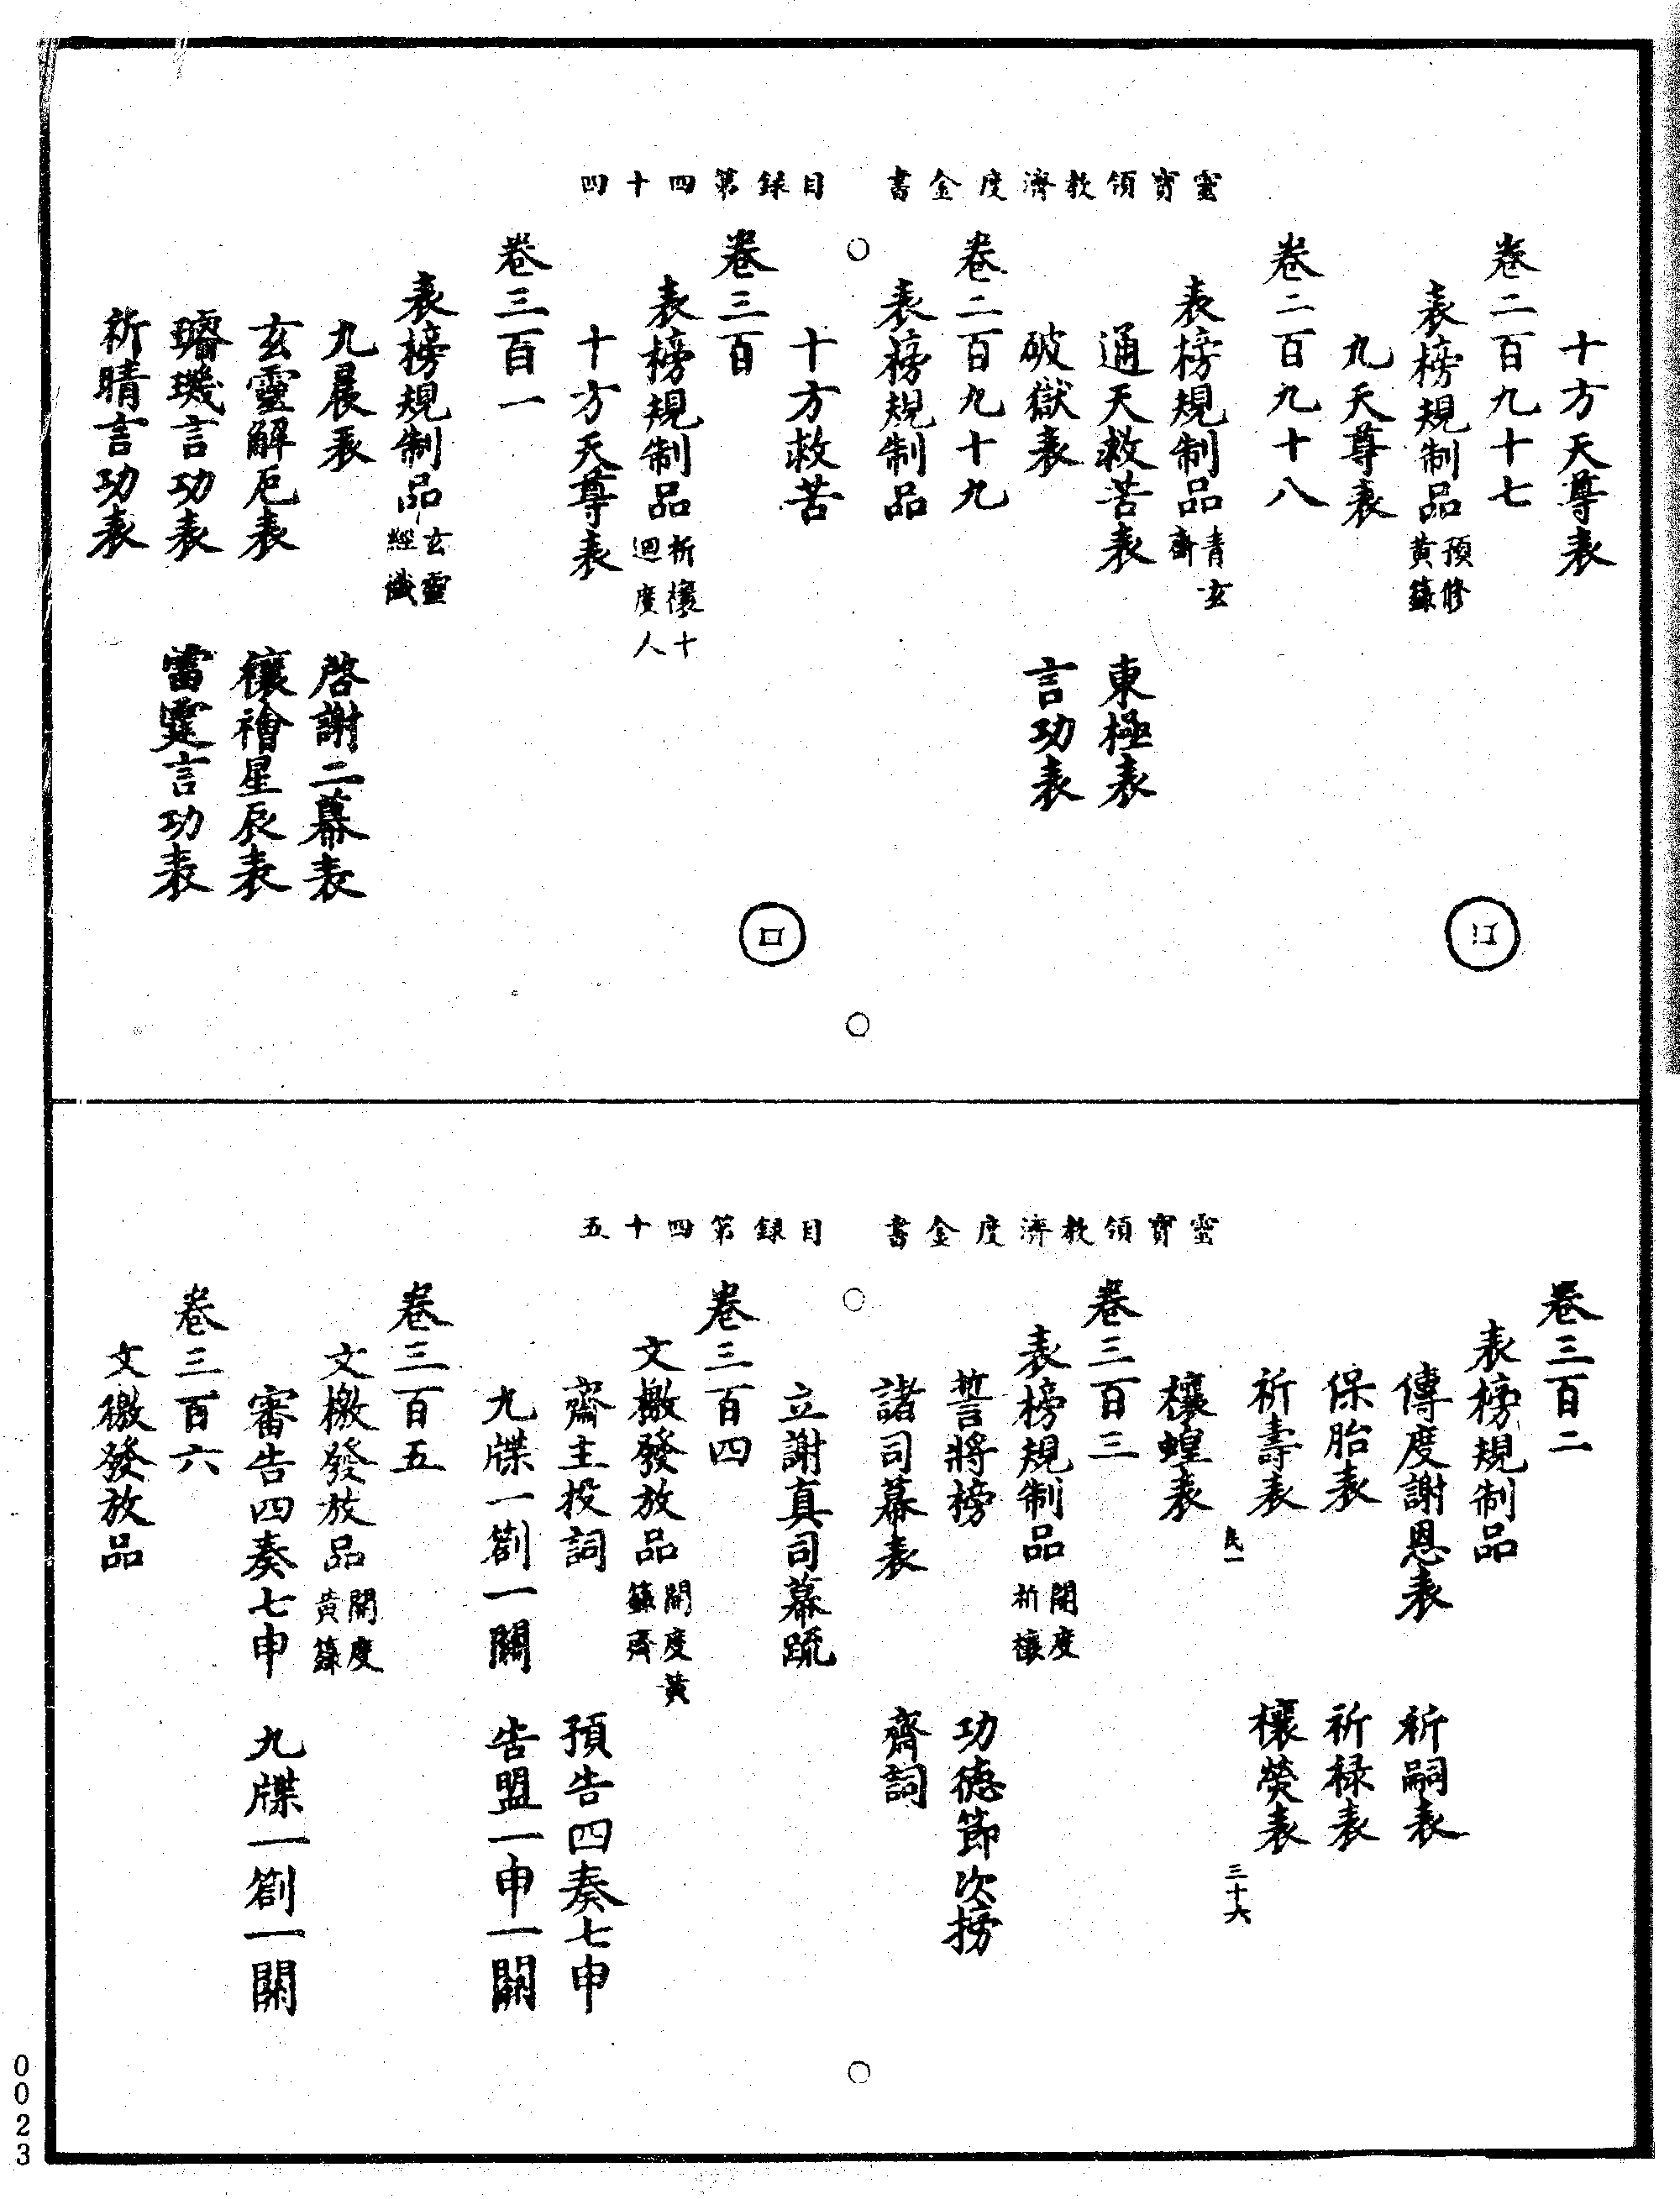 靈寶領教濟度金書　目錄第四十四
十方天尊表
卷二百九十七
表榜規制品 預修黃籙
九天尊表
卷二百九十八
表榜規制品 青玄齋
通天救苦表　東極表
破獄表　言功表
卷二百九十九
表榜規制品
十方救苦
卷三百
表榜規制品 祈禳十迴度人
十方天尊表
卷三百一
表榜規制品 玄靈經懺
九晨表　啓謝二幕表
玄靈解厄表　禳禬星辰表
璿璣言功表　雷霆言功表
祈晴言功表
靈寶領教濟度金書　目錄第四十五
卷三百二
表榜規制品
傳度謝恩表　祈嗣表
保胎表　祈祿表
祈壽表　禳熒表
民一　三十六
禳蝗表
卷三百三
表榜規制品 開度祈禳
誓將榜　功德節次榜
諸司幕表　齋詞
立謝真司幕䟽
卷三百四
文檄發放品 開度黃籙齋
齋主投詞　預告四奏七申
九牒一劄一關　告盟一申一關
卷三百五
文檄發放品 開度黃籙
審告四奏七申　九牒一劄一關
卷三百六
文檄發放品
0023